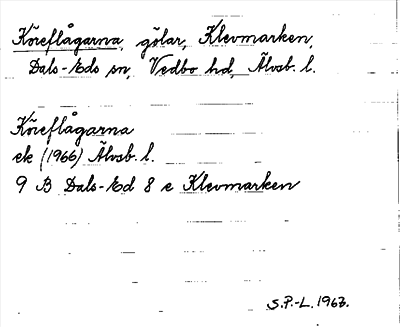 Köreflågarna, gölar, Klevmarken,
Dals-Eds sn, Vedbo hd, Älvsb. l.
Köreflågarna
ek (1966) Älvsb. l.
9 B Dals-Ed 8 e Klevmarken
S.P.-L. 1967.